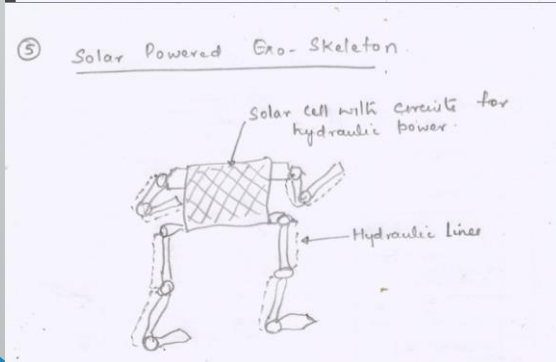 ⑤ Solar Powered Exo-Skeleton.
Solar Cell with circuits for
hydraulic power.
Hydraulic Lines